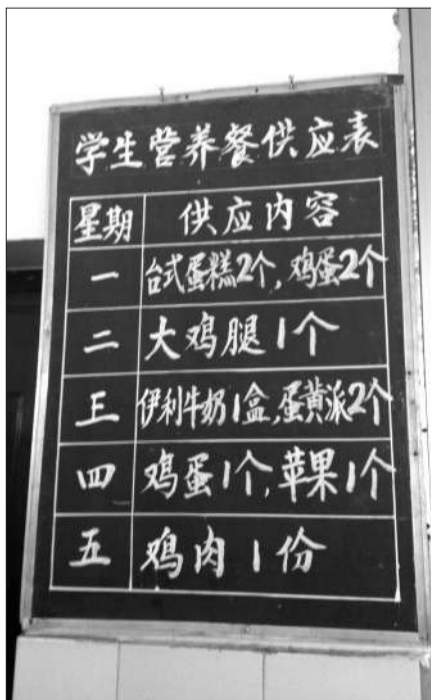 学生营养餐供应表
星期 供应内容
一 台式蛋糕2个,鸡蛋2个
二 大鸡腿1个
三 伊利牛奶1盒,蛋黄派2个
四 鸡蛋1个,苹果1个
五 鸡肉1份